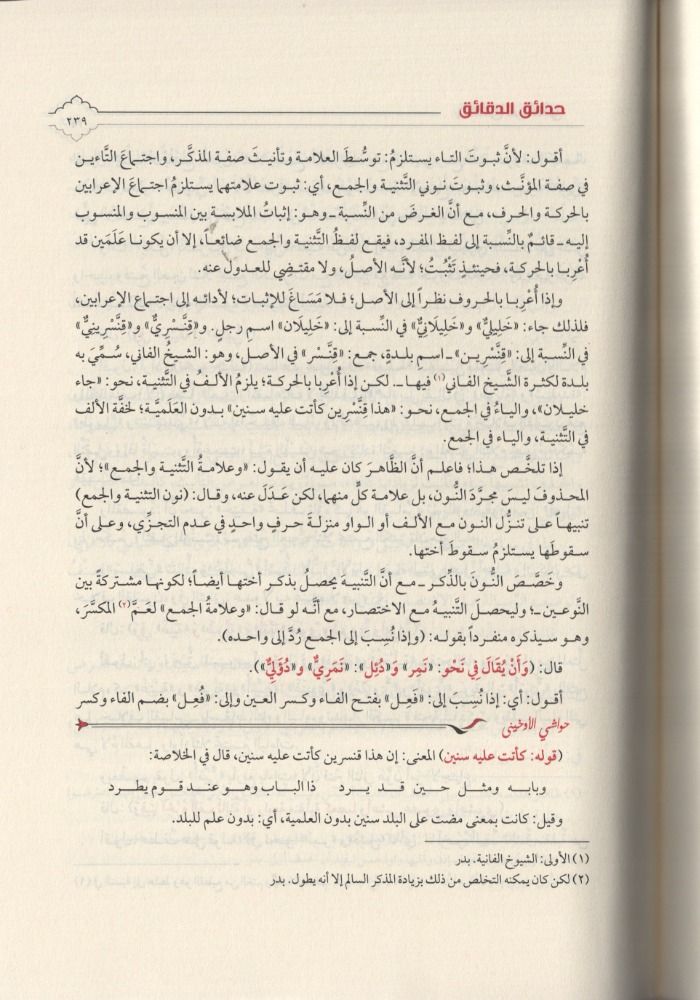 حدائق الدقائق
٢٣٩
أقول: لأنَّ ثبوت التاء يستلزمُ: توسُّطَ العلامة وتأنيثَ صفة المذكَّر، واجتماعَ التَّاءين
في صفة المؤنَّث، وثبوتَ نوني التَّثنية والجمع، أي: ثبوت علامتهما يستلزمُ اجتماعَ الإعرابين
بالحركة والحرف، مع أنَّ الغرضَ من النِّسبة ـ وهو: إثباتُ الملابسة بين المنسوب والمنسوب
إليه ـ قائمٌ بالنِّسبة إلى لفظ المفرد، فيقع لفظُ التَّثنية والجمع ضائعاً، إلا أن يكونا عَلَمَين قد
أُعْرِبا بالحركة، فحينئذٍ تَثْبُتُ؛ لأنَّه الأصلُ، ولا مقتضِي للعدول عنه.
وإذا أُعْرِبا بالحروف نظراً إلى الأصل؛ فلا مَسَاغَ للإثبات؛ لأدائه إلى اجتماع الإعرابين،
فلذلك جاء: «خَلِيلِيٌّ» و«خَلِيلَانِيٌّ» في النِّسبة إلى: «خَلِيلَان» اسمِ رجلٍ. و«قِنَّسْرِيٌّ» و«قِنَّسْرِينِيٌّ»
في النِّسبة إلى: «قِنَّسْرِين» ـ اسم بلدةٍ، جمع: «قِنَّسْر» في الأصل، وهو: الشيخُ الفاني، سُمِّيَ به
بلدة لكثرة الشَّيخ الفاني(١) فيها ـ. لكن إذا أُعْرِبا بالحركة؛ يلزمُ الألفُ في التَّثنية، نحو: «جاء
خليلان»، والياءُ في الجمع، نحو: «هذا قِنَّسْرِين كأتت عليه سنين» بدون العَلَميَّة؛ لخفَّة الألف
في التَّثنية، والياء في الجمع.
إذا تلخَّص هذا؛ فاعلم أنَّ الظَّاهرَ كان عليه أن يقول: «وعلامةُ التَّثنية والجمع»؛ لأنَّ
المحذوفَ ليسَ مجرَّدَ النُّون، بل علامة كلٍّ منهما، لكن عَدَلَ عنه، وقال: (نون التَّثنية والجمع)
تنبيهاً على تنزُّل النون مع الألف أو الواو منزلةَ حرفٍ واحدٍ في عدم التجزِّي، وعلى أنَّ
سقوطَها يستلزمُ سقوطَ أختها.
وخَصَّصَ النُّونَ بالذِّكر ـ مع أنَّ التَّنبيهَ يحصلُ بذكر أختها أيضاً؛ لكونها مشتركةً بين
النَّوعين ـ؛ وليحصلَ التَّنبيهُ مع الاختصار، مع أنَّه لو قال: «وعلامةُ الجمع» لعَمَّ(٢) المكسَّرَ،
وهو سيذكره منفرداً بقوله: (وإذا نُسِبَ إلى الجمع رُدَّ إلى واحده).
قال: (وَأَنْ يُقَالَ فِي نَحْوِ: «نَمِرٍ» وَ«دُئِلٍ»: «نَمَرِيٌّ» و«دُؤَلِيٌّ»).
أقول: أي: إذا نُسِبَ إلى: «فَعِل» بفتح الفاء وكسر العين وإلى: «فُعِل» بضم الفاء وكسر
حواشي الأوخيني
(قوله: كأتت عليه سنين) المعنى: إن هذا قنسرين كأتت عليه سنين، قال في الخلاصة:
وبابه ومثل حين قد يرد ذا الباب وهو عند قوم يطرد
وقيل: كانت بمعنى مضت على البلد سنين بدون العلمية، أي: بدون علم للبلد.
(١) الأولى: الشيوخ الفانية. بدر
(٢) لكن كان يمكنه التخلص من ذلك بزيادة المذكر السالم إلا أنه يطول. بدر